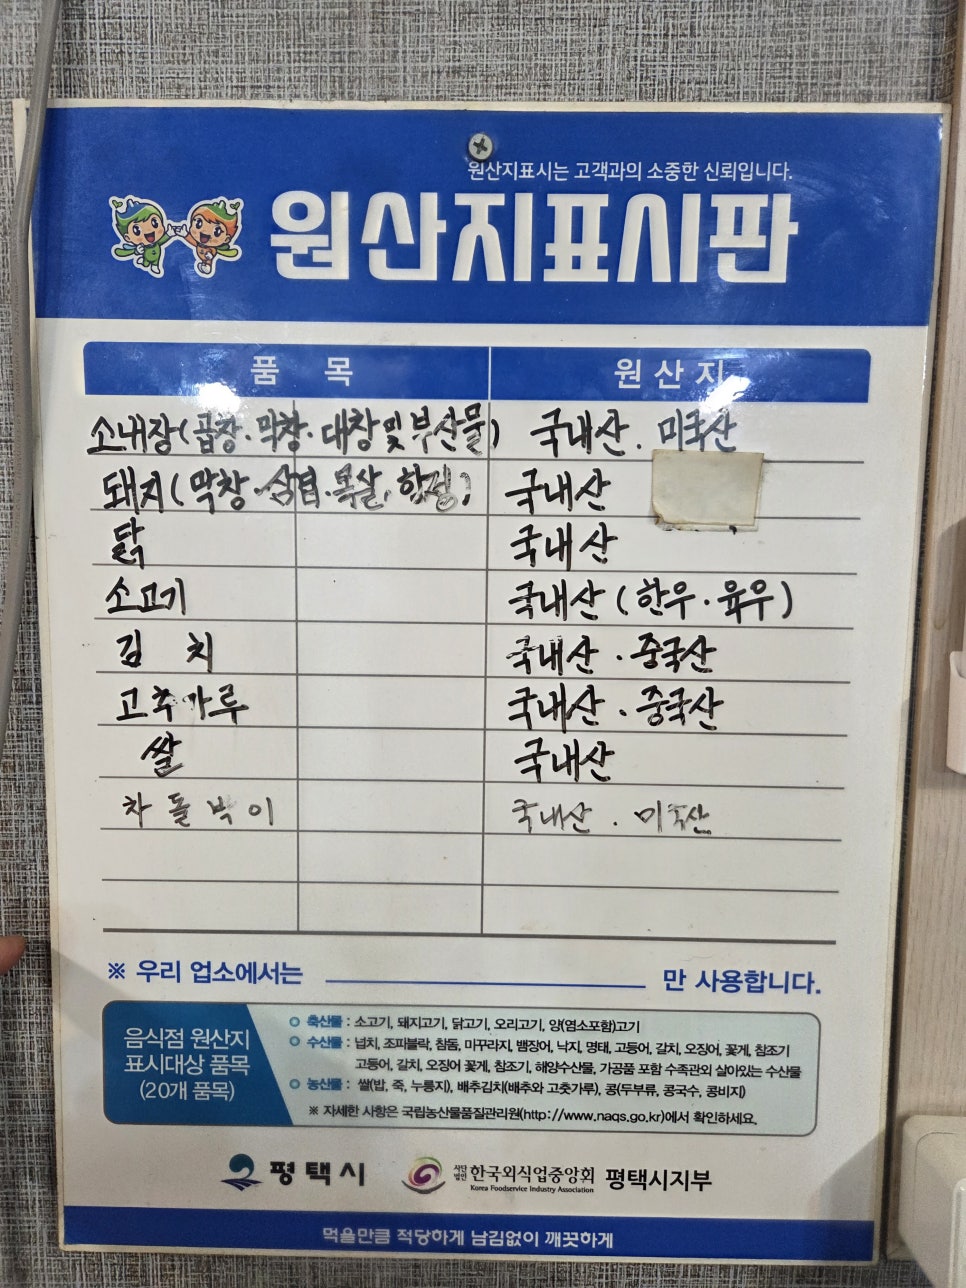 원산지표시는 고객과의 소중한 신뢰입니다.
원산지표시판
품 목 원산지
소내장(곱창·막창·대창 및 부산물) 국내산. 미국산
돼지(막창·삼겹·목살, 항정) 국내산
닭 국내산
소고기 국내산(한우·육우)
김 치 국내산 · 중국산
고추가루 국내산 · 중국산
쌀 국내산
차돌박이 국내산 · 미국산
※ 우리 업소에서는 만 사용합니다.
음식점 원산지
표시대상 품목
(20개 품목)
축산물 : 소고기, 돼지고기, 닭고기, 오리고기, 양(염소포함)고기
수산물 : 넙치, 조피볼락, 참돔, 미꾸라지, 뱀장어, 낙지, 명태, 고등어, 갈치, 오징어, 꽃게, 참조기
고등어, 갈치, 오징어 꽃게, 참조기, 해양수산물, 가공품 포함 수족관외 살아있는 수산물
농산물 : 쌀(밥, 죽, 누룽지), 배추김치(배추와 고춧가루), 콩(두부류, 콩국수, 콩비지)
※ 자세한 사항은 국립농산물품질관리원(http://www.naqs.go.kr)에서 확인하세요.
평택시 사단법인 한국외식업중앙회 평택시지부
Korea Foodservice Industry Association
먹을만큼 적당하게 남김없이 깨끗하게